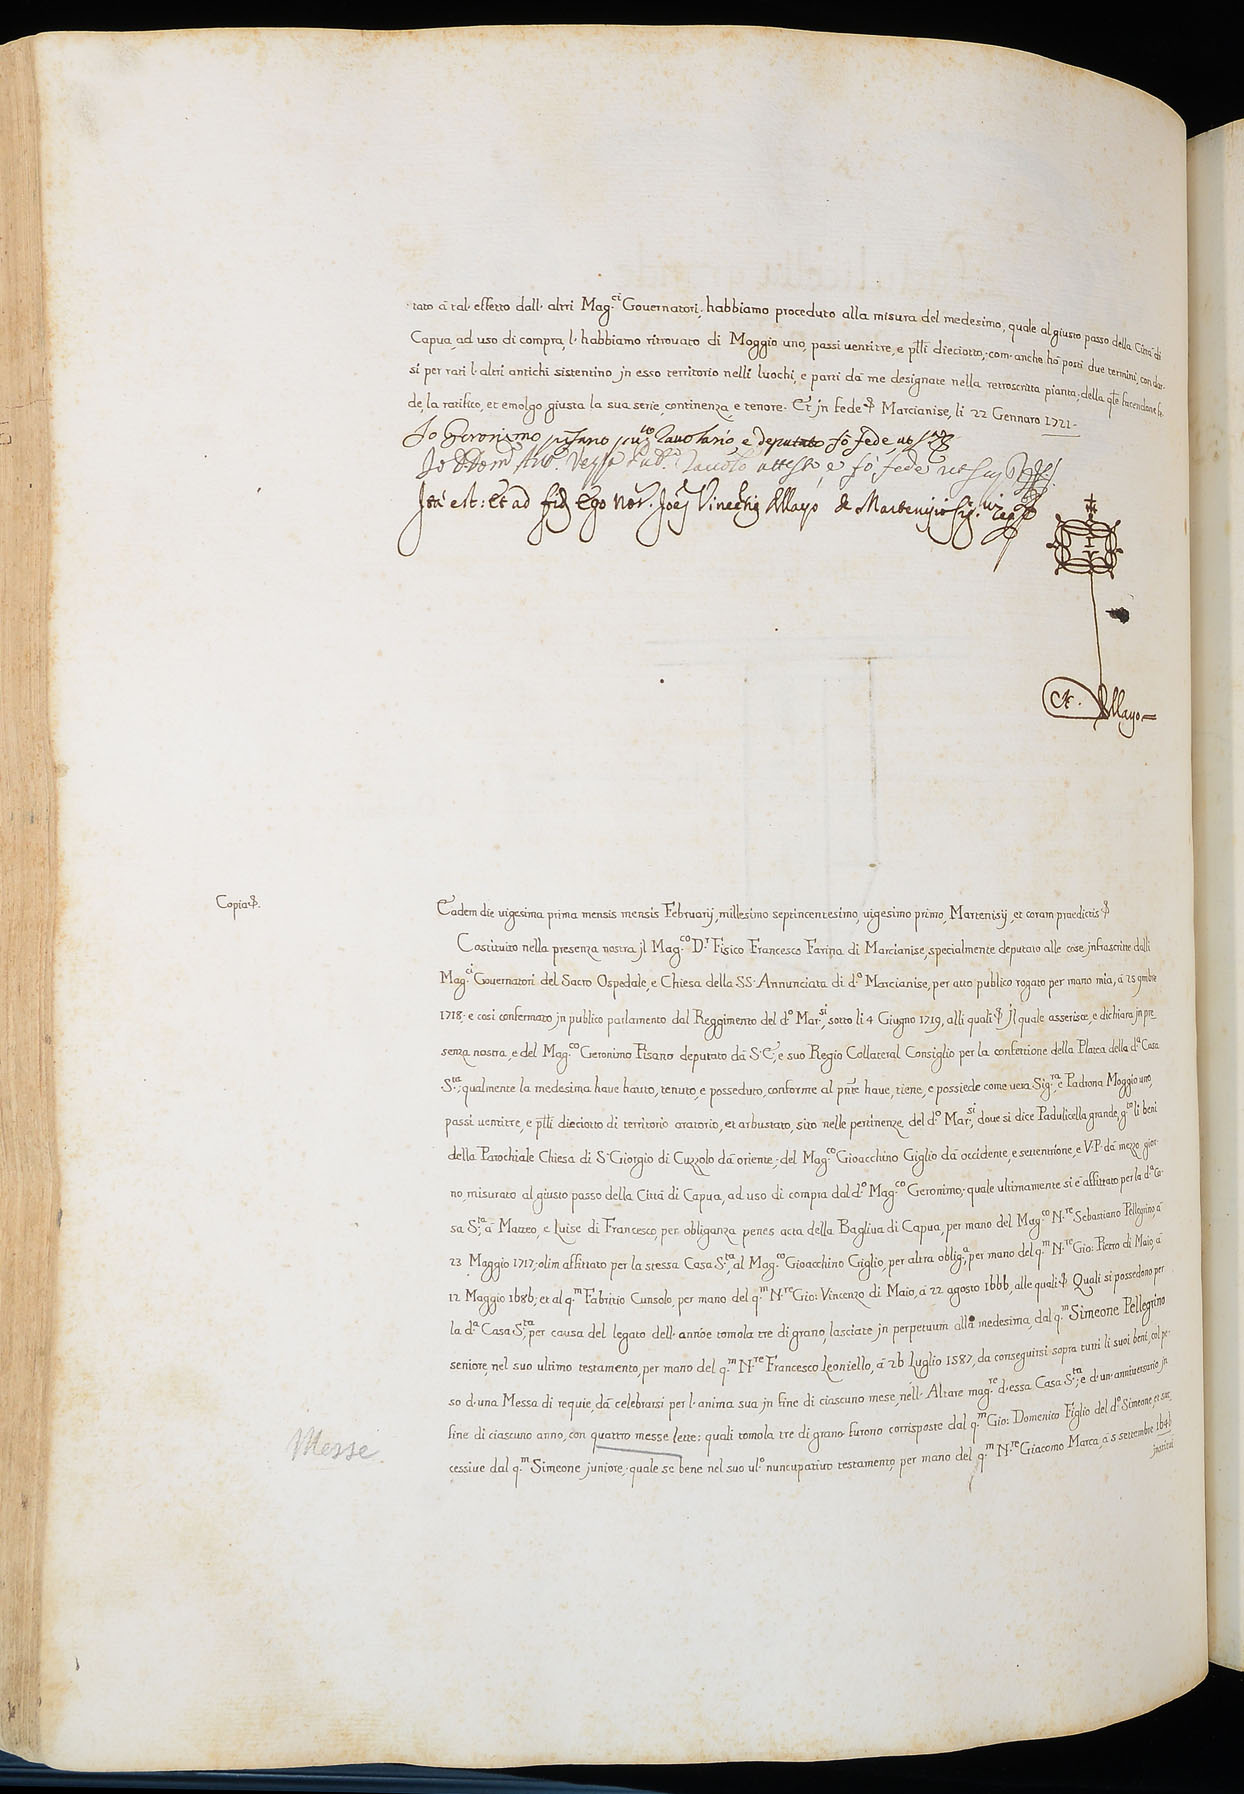 tato à tal' effetto dall' altri Mag.ci Governatori, habbiamo proceduto alla misura del medesimo, quale al giusto passo della Città di
Capua, ad uso di compra, l' habbiamo ritrovato di Moggio uno, passi ventitre, e p̄tti dieciotto, com' anche hà posti due termini, con due
si per rati l' altri antichi sistentino jn esso territorio nelli luochi, e parti dà me designate nella retroscritta pianta, della q̄le facendone fe-
de, la ratifico, et emolgo giusta la sua serie, continenza, e tenore. Et jn fede Marcianise, li 22 Gennaro 1721.
Io Geronimo Pisano Tavolario, e deputato fò fede, ut
Ità est: Et ad fid Ego Not. Joēs Mayo de Martenisio
Mayo
Copia
Eadem die vigesima prima mensis mensis Februarij, millesimo septincentesimo, vigesimo primo, Martenisij, et coram praedictis
Costituito nella presenza nostra jl Mag.co D.r Fisico Francesco Farina di Marcianise, specialmente deputato alle cose jnfrascritte dalli
Mag.ci Governatori del Sacro Ospedale, e Chiesa della SS. Annunciata di d.o Marcianise, per atto publico rogato per mano mia, à 25 9mbre
1718. e così confermato jn publico parlamento dal Reggimento del d.o Mar.si, sotto li 4 Giugno 1719, alli quali Jl quale asserisce, e dichiara jn pre-
senza nostra, e del Mag.co Geronimo Pisano deputato dà S. E., e suo Regio Collateral Consiglio per la confettione della Platea della d.a Casa
S.ta, qualmente la medesima have havuto, tenuto, e posseduto, conforme al p̄nte have, tiene, e possiede come vera Sig.ra, e Padrona Moggio uno,
passi ventitre, e p̄tti dieciotto di territorio aratorio, et arbustato, sito nelle pertinenze del d.o Mar.si, dove si dice Padulicella grande, g.to li beni
della Parochiale Chiesa di S. Giorgio di Cuzzolo dà oriente, del Mag.co Gioacchino Giglio dà occidente, e settentrione, e V.P. dà mezzo gior-
no, misurato al giusto passo della Città di Capua, ad uso di compra dal d.o Mag.co Geronimo, quale ultimamente si è affittato per la d.a Ca-
sa S.ta, à Matteo, e Luise di Francesco, per obliganza penes acta della Bagliva di Capua, per mano del Mag.co N.re Sebastiano Pellegrino, à
23 Maggio 1717, olim affittato per la stessa Casa S.ta, al Mag.co Gioacchino Giglio, per altra oblig.a, per mano del q.m N.re Gio: Pietro di Maio, à
12 Maggio 1686, et al q.m Fabritio Cunsolo, per mano del q.m N.re Gio: Vincenzo di Maio, à 22 agosto 1666, alle quali Quali si possedono per
la d.a Casa S.ta, per causa del legato dell' annoe tomola tre di grano, lasciate jn perpetuum alla medesima, dal q.m Simeone Pellegrino
seniore, nel suo ultimo testamento, per mano del q.m N.re Francesco Leoniello, à 26 Luglio 1587, da conseguirsi sopra tutti li suoi beni, col pe-
so d' una Messa di requie, dà celebrarsi per l' anima sua jn fine di ciascuno mese, nell' Altare mag.re d' essa Casa S.ta, e d' un' anniversario jn
fine di ciascuno anno, con quattro messe lette; quali tomola tre di grano furono corrisposte dal q.m Gio: Domenico Figlio del d.o Simeone, et suc-
Messe
cessive dal q.m Simeone juniore, quale se bene nel suo ul.o nuncupativo testamento, per mano del q.m N.re Giacomo Marca, à 5 settembre 1646
jnstituì